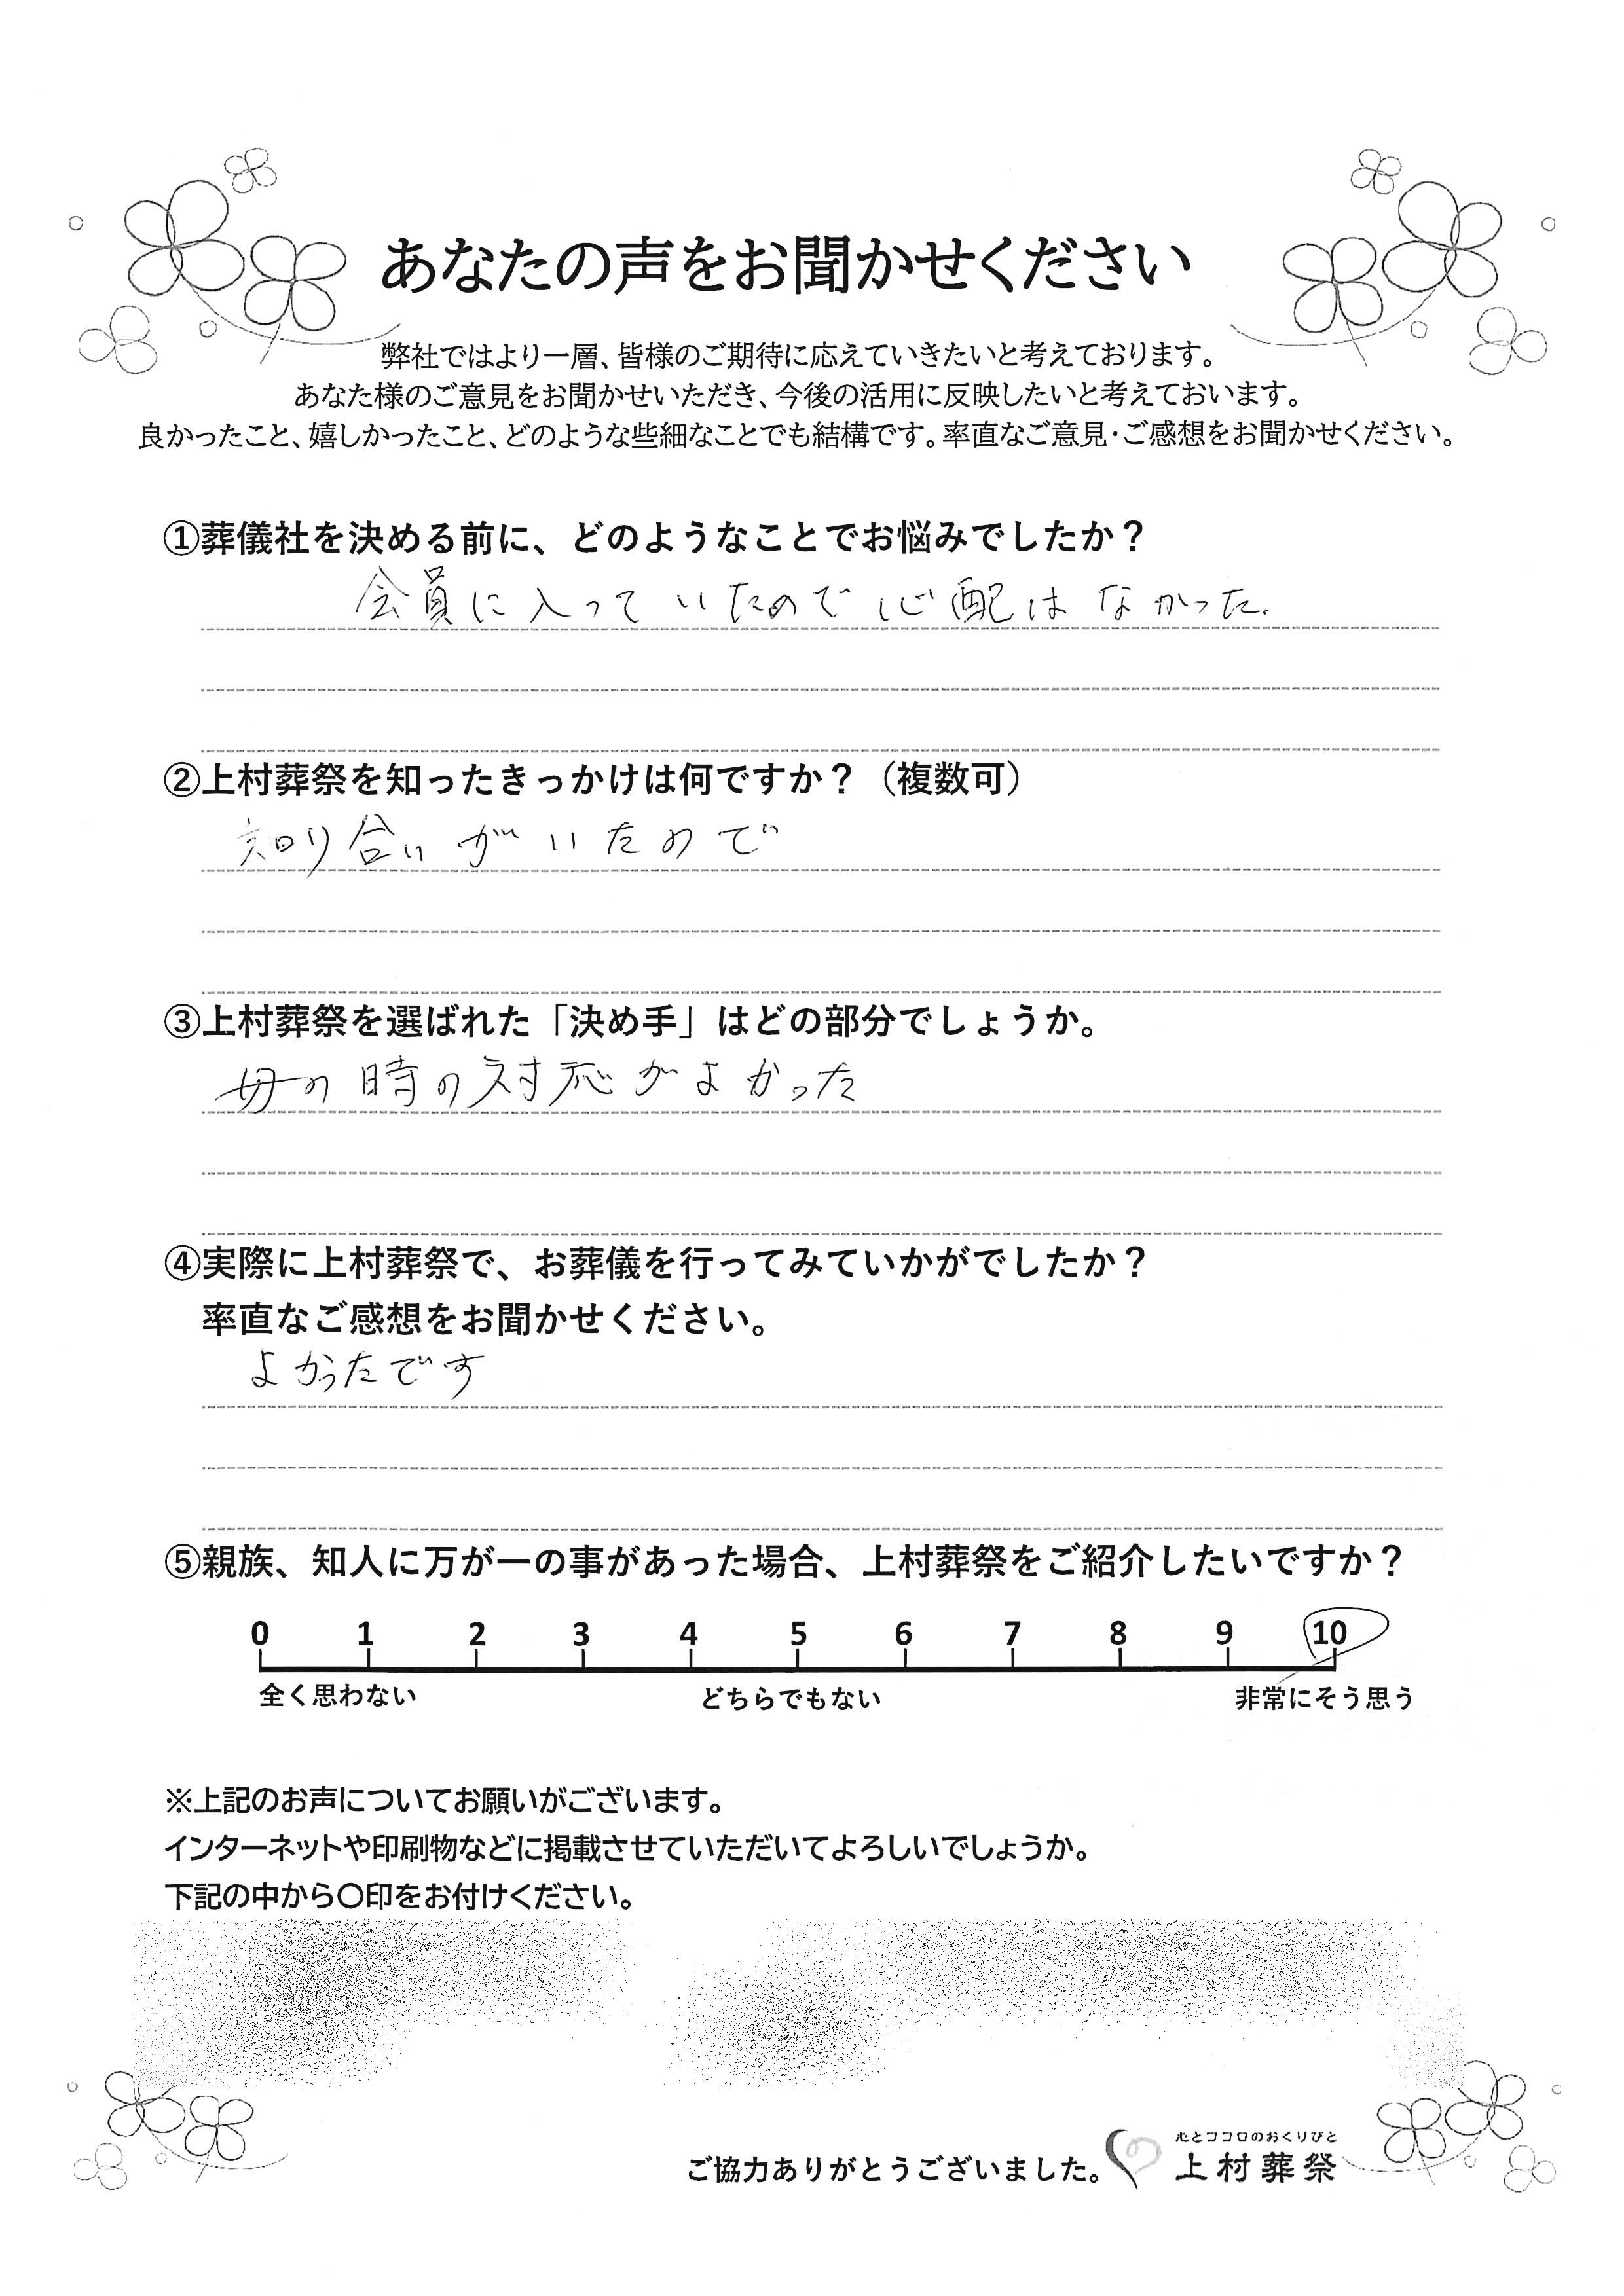 あなたの声をお聞かせください
弊社ではより一層、皆様のご期待に応えていきたいと考えております。
あなた様のご意見をお聞かせいただき、今後の活用に反映したいと考えておいます。
良かったこと、嬉しかったこと、どのような些細なことでも結構です。率直なご意見・ご感想をお聞かせください。
①葬儀社を決める前に、どのようなことでお悩みでしたか？
会員に入っていたので心配はなかった.
②上村葬祭を知ったきっかけは何ですか？（複数可）
知り合いがいたので
③上村葬祭を選ばれた「決め手」はどの部分でしょうか。
母の時の対応がよかった
④実際に上村葬祭で、お葬儀を行ってみていかがでしたか？
率直なご感想をお聞かせください。
よかったです
⑤親族、知人に万が一の事があった場合、上村葬祭をご紹介したいですか？
0 1 2 3 4 5 6 7 8 9 10
全く思わない どちらでもない 非常にそう思う
※上記のお声についてお願いがございます。
インターネットや印刷物などに掲載させていただいてよろしいでしょうか。
下記の中から〇印をお付けください。
心とココロのおくりびと
ご協力ありがとうございました。 上村葬祭